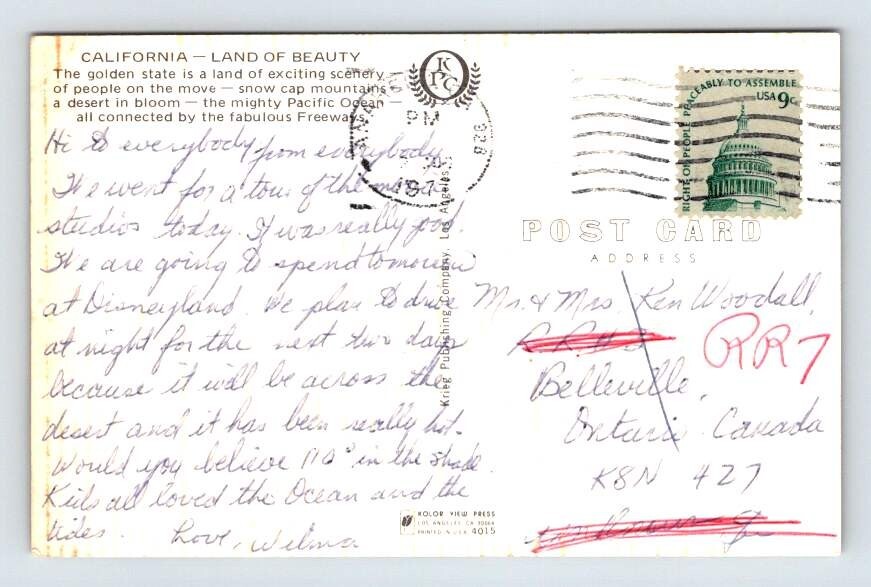 CALIFORNIA — LAND OF BEAUTY
The golden state is a land of exciting scenery,
of people on the move — snow cap mountains
a desert in bloom — the mighty Pacific Ocean —
all connected by the fabulous Freeways.
KPC
PM
928
RIGHT OF PEOPLE PEACEABLY TO ASSEMBLE
USA 9c
Hi to everybody from everybody
We went for a tour of the movie
studios today. It was really good.
We are going to spend tomorrow
at Disneyland. We plan to drive
at night for the next two days
because it will be across the
desert and it has been really hot.
Would you believe 110° in the shade.
Kids all loved the Ocean and the
tides. Love, Wilma
Krieg Publishing Company, Los Angeles
KOLOR VIEW PRESS
LOS ANGELES, CA 90064
PRINTED IN U.S.A. 4015
POST CARD
ADDRESS
Mr. & Mrs. Ken Woodall,
RR 7
Belleville,
Ontario Canada
K8N 4Z7